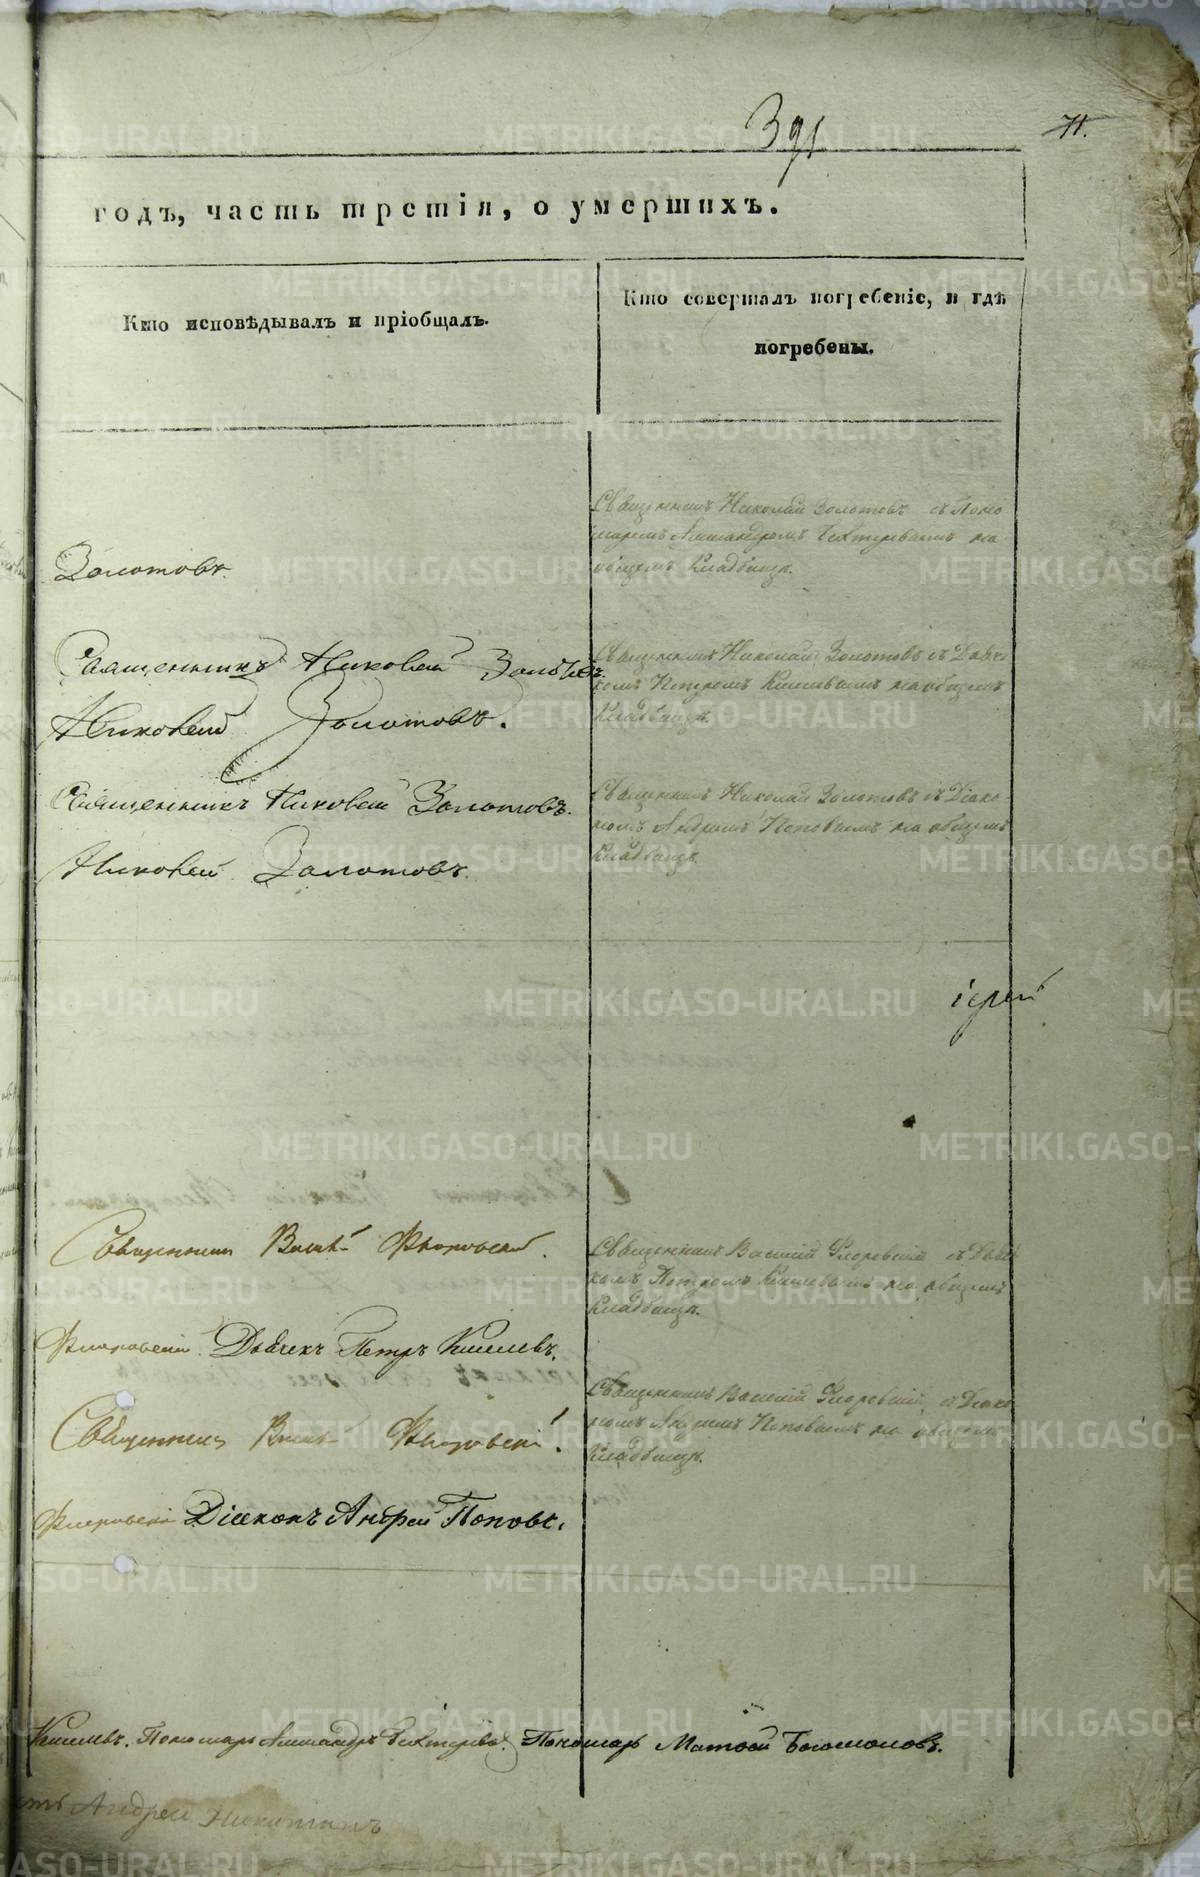 391
71.
годъ, часть третія, о умершихъ.
Кто исповѣдывалъ и пріобщалъ.
Кто совершалъ погребеніе, и гдѣ
погребены.
Священникъ Николай Золотовъ съ Поно
маремъ Александромъ на
общемъ Кладбищѣ.
Золотовъ.
Священникъ Николай Золотовъ.
Николай Золотовъ.
Священникъ Николай Золотовъ съ Дьяч
комъ Петромъ Киселевымъ на общемъ
Кладбищѣ.
Священникъ Николай Золотовъ.
Николай Золотовъ.
Священникъ Николай Золотовъ съ Діако
номъ Андреемъ Поповымъ на общемъ
Кладбищѣ.
іерей
Священникъ Василій Флоровскій.
Флоровскій Дьячекъ Петръ Киселевъ.
Священникъ Василій Флоровскій съ Дьяч
комъ Петромъ Киселевымъ на общемъ
Кладбищѣ.
Священникъ Василій Флоровскій.
Флоровскій Діаконъ Андрей Поповъ.
Священникъ Василій Флоровскій съ Діако
номъ Андреемъ Поповымъ на общемъ
Кладбищѣ.
Киселевъ. Пономарь Александръ Пономарь Матвей Богомоловъ.
Андрей Никитинъ
METRIKI.GASO-URAL.RU